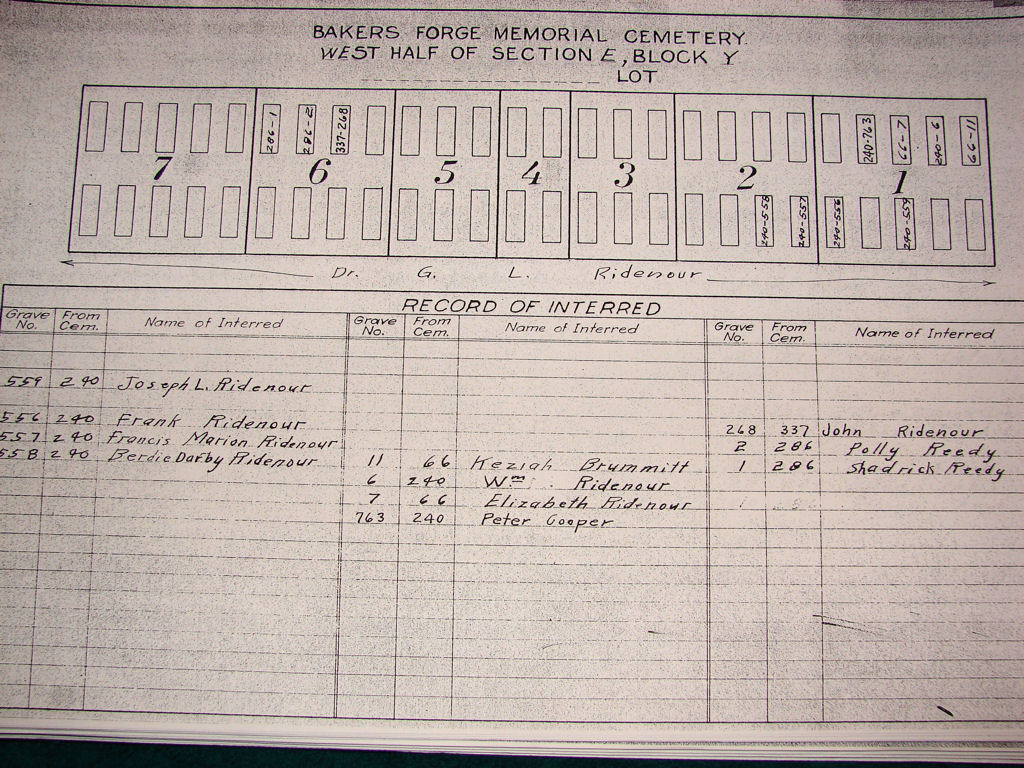 BAKERS FORGE MEMORIAL CEMETERY
WEST HALF OF SECTION E, BLOCK Y
LOT
286-1 286-2 337-268 240-763 66-7 240-6 66-11
7 6 5 4 3 2 1
240-558 240-557 240-556 240-559
Dr. G. L. Ridenour
RECORD OF INTERRED
Grave No. From Cem. Name of Interred Grave No. From Cem. Name of Interred Grave No. From Cem. Name of Interred
559 240 Joseph L. Ridenour
556 240 Frank Ridenour 268 337 John Ridenour
557 240 Francis Marion Ridenour 2 286 Polly Reedy
558 240 Berdie Darby Ridenour 11 66 Keziah Brummitt 1 286 Shadrick Reedy
6 240 Wm. Ridenour
7 66 Elizabeth Ridenour
763 240 Peter Cooper